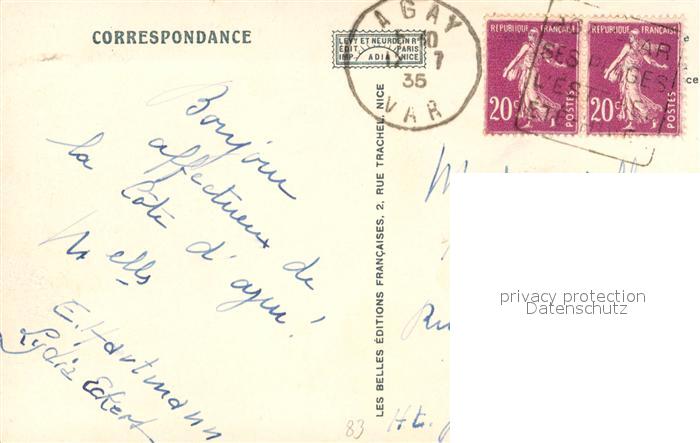 CORRESPONDANCE
LEVY ET NEURDEIN Rés
EDIT. PARIS
IMP. ADIA NICE
AGAY
VAR
7
35
REPUBLIQUE FRANÇAISE
20c
POSTES
REPUBLIQUE FRANÇAISE
20c
POSTES
SES PLAGES
Bonjour
affectueux de
la Côte d'azur!
Melle
E. Hartmann
Lydia Eckert
LES BELLES ÉDITIONS FRANÇAISES, 2, RUE TRACHEL, NICE
privacy protection
Datenschutz
83